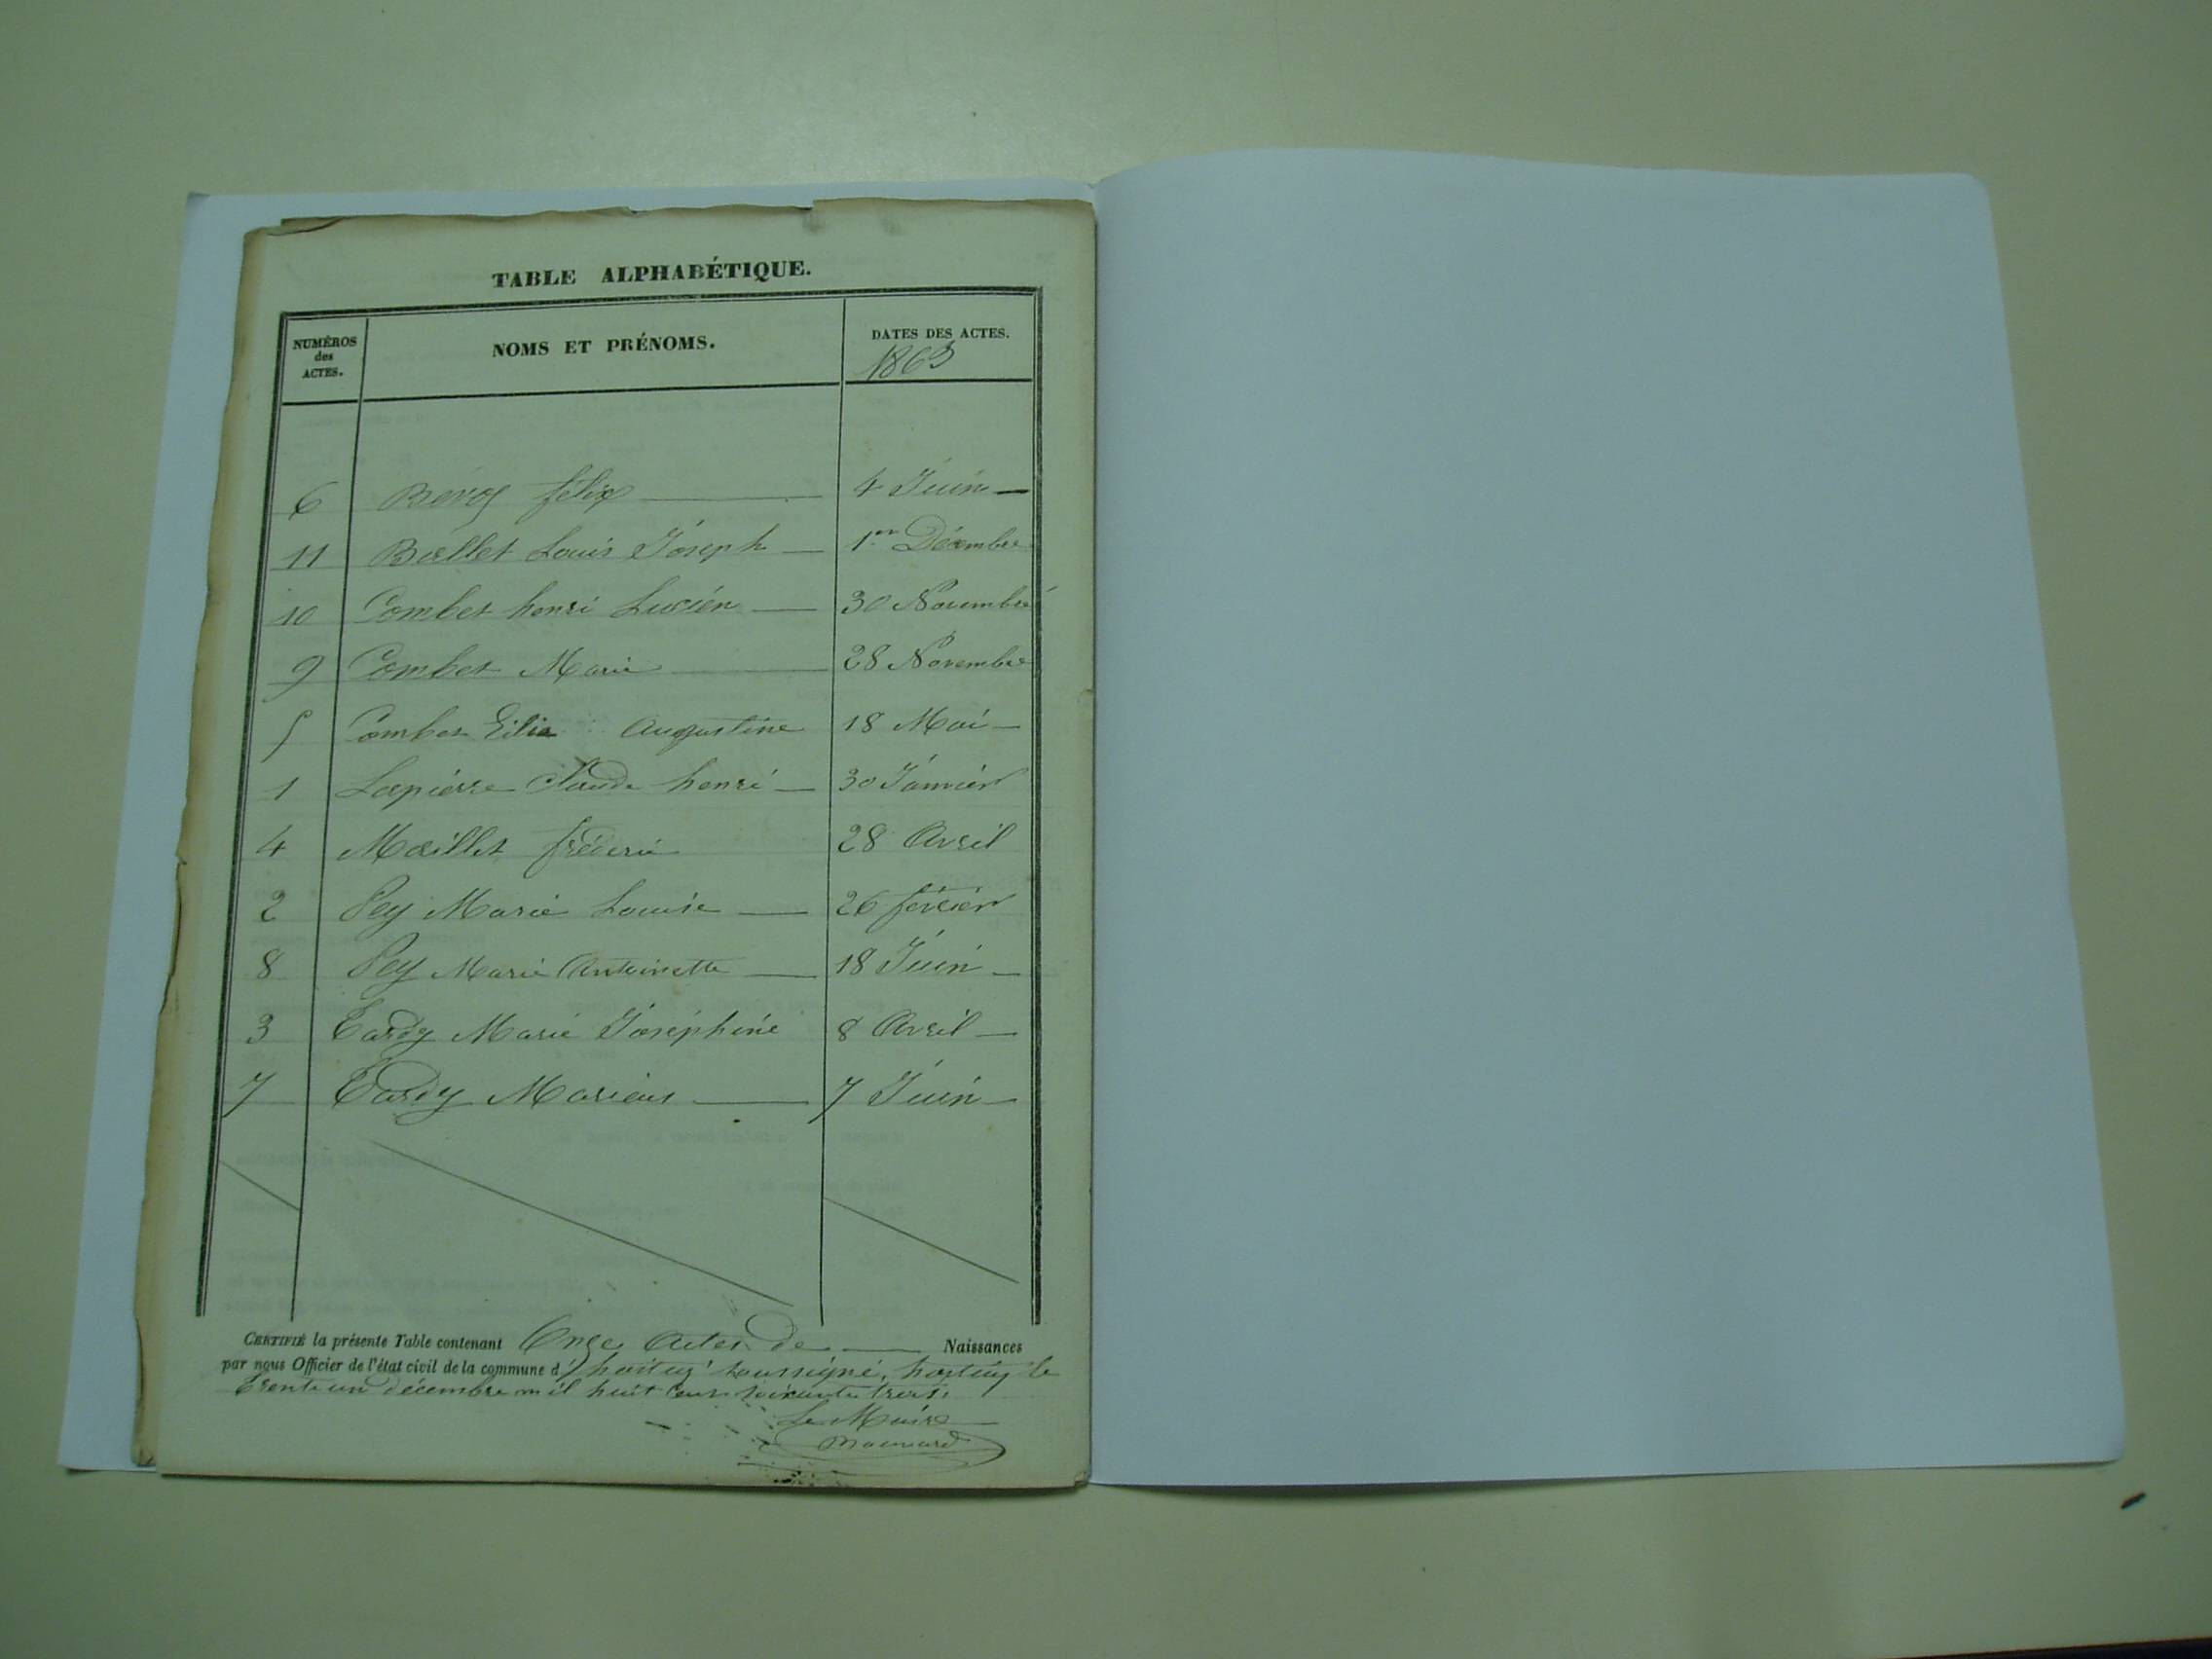 TABLE ALPHABÉTIQUE.
NUMÉROS des ACTES. NOMS ET PRÉNOMS. DATES DES ACTES.
1863
6 félix 4 Juin
11 Ballet Louis Joseph 1er Décembre
10 Combet henri Lucien 30 Novembre
9 Combet Marie 28 Novembre
5 Combet Augustine 18 Mai
1 Lapierre Claude henri 30 Janvier
4 Maillet fréderic 28 Avril
2 Pey Marie Louise 26 février
8 Pey Marie Antoinette 18 Juin
3 Tardy Marie Joséphine 8 Avril
7 Tardy Marius 7 Juin
CERTIFIÉ la présente Table contenant Onze Actes de Naissances
par nous Officier de l'état civil de la commune d' soussigné, le
trente un décembre mil huit cent soixante trois.
Le Maire